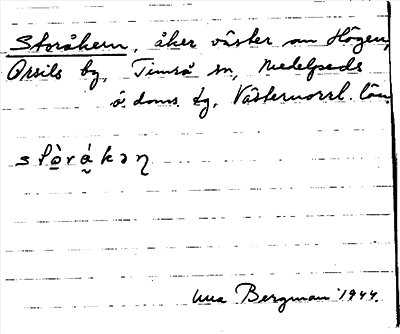 Storåkern, åker väster om Högen,
Orsils by, Timrå sn, Medelpads
ö. doms. tg, Västernorrl. län.
stòrákəη
Una Bergman 1944.